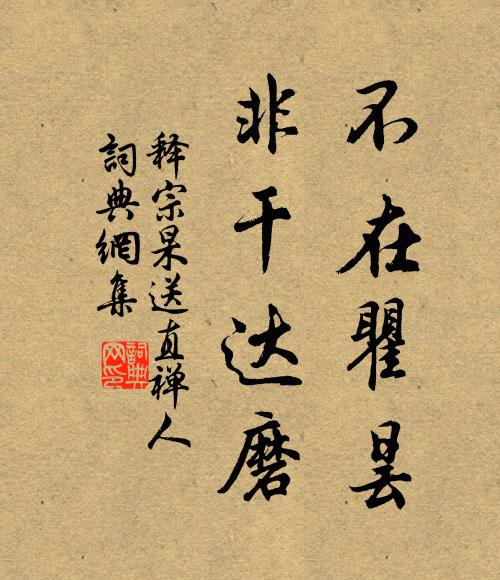 不在瞿昙
非干达磨
释宗杲送直禅人
詞典網集
詞典网印